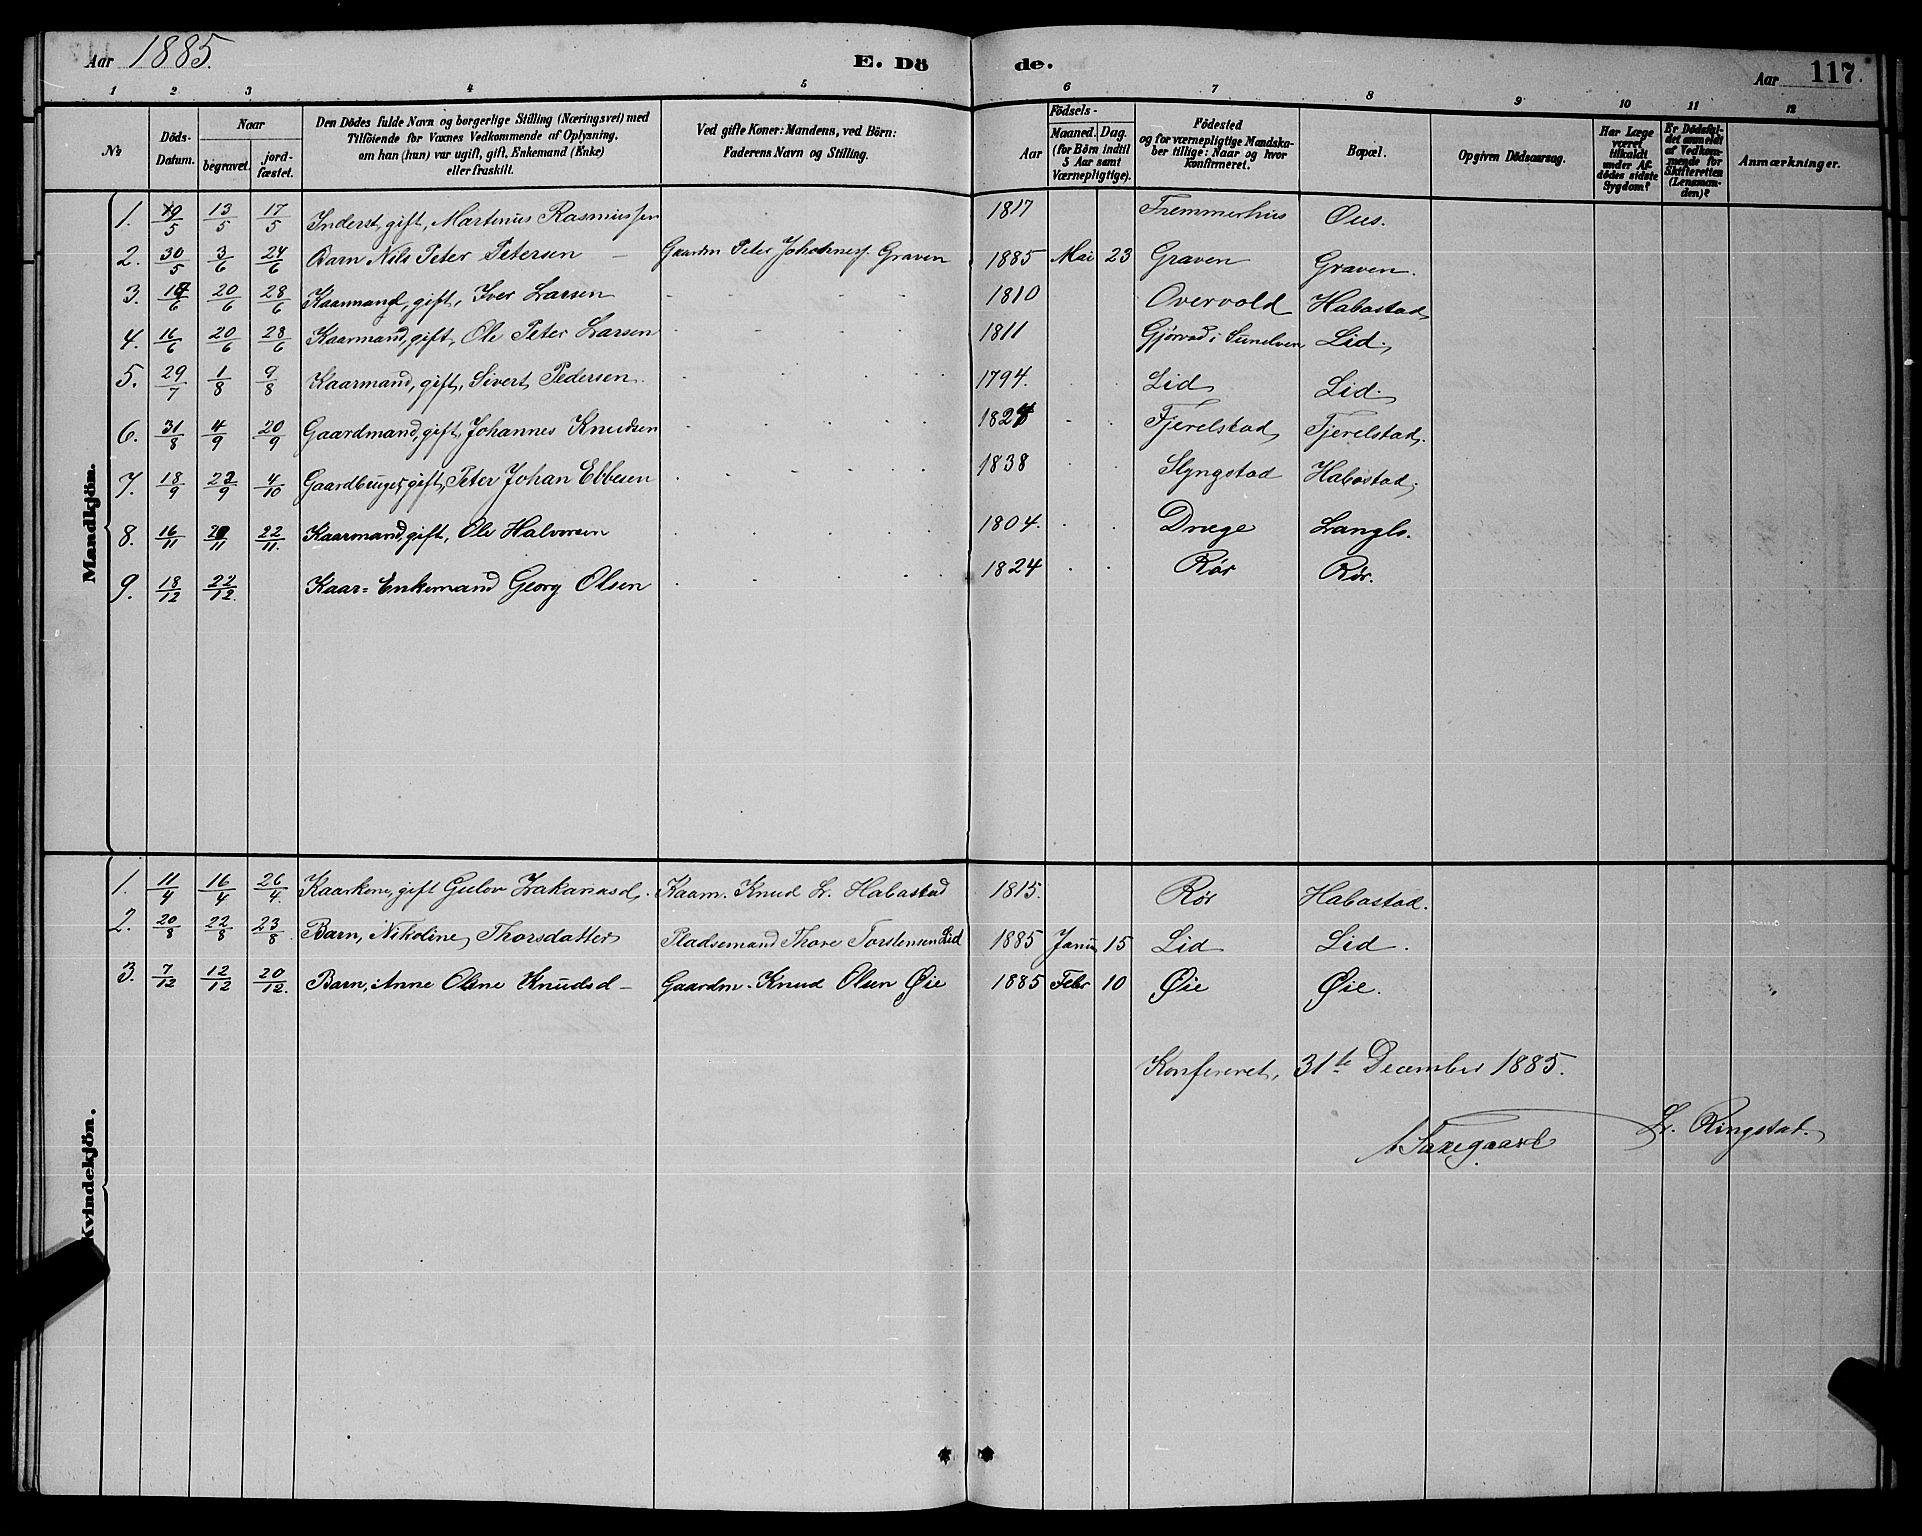 Aar 1885. E. Dö de. Aar 117.
1 2 3 4 5 6 7 8 9 10 11 12
№ Döds-Datum. Naar begravet. jordfæstet. Den Dödes fulde Navn og borgerlige Stilling (Næringsvei) med Tilföiende for Voxnes Vedkommende af Oplysning, om han (hun) var ugift, gift, Enkemand (Enke) eller fraskilt. Ved gifte Koner: Mandens, ved Börn: Faderens Navn og Stilling. Födsels- Aar Maaned. Dag. (for Börn indtil 5 Aar samt Værnepligtige). Födested og for værnepligtige Mandskaber tillige: Naar og hvor konfirmeret. Bopæl. Opgiven Dödsaarsag. Har Læge været tilkaldt under Afdödes sidste Sygdom? Er Dödsfaldet anmeldt af Vedkommende for Skifteretten (Lensmanden)? Anmærkninger.
Mandkjön.
1. 10/5 13/5 17/5 Inderst, gift, Martinus Rasmussen 1817 Tremmerhus Ous.
2. 30/5 3/6 24/6 Barn Nils Peter Petersen – Gaardm Peter Johannes. Graven 1885 Mai 23 Graven Graven.
3. 6 20/6 28/6 Kaarmand, gift, Iver Larsen 1810 Overvold Habostad
4. 16/6 20/6 28/6 Kaarmand, gift, Ole Peter Larsen 1811 Gjørvad i Sunelven Lid.
5. 29/7 1/8 9/8 Kaarmand, gift, Sivert Pedersen. 1794. Lid Lid.
6. 31/8 4/9 20/9 Gaardmand, gift, Johannes Knudsen Fjerelstad Fjerelstad.
7. 18/9 23/9 4/10 Gaardbruger, gift, Peter Johan Ebbesen 1838 Slyngstad Habostad.
8. 16/11 11 22/11. Kaarmand, gift, Ole Halvorsen 1804. Drege Langlo.
9. 18/12 22/12. Kaar= Enkemand Georg Olsen 1824 Rör Rör.
Kvindekjön.
1. 11/4 16/4 26/4. Kaarkone, gift Gulov Zakariasd. Kaarm. Knud L. Habostad 1815. Rör Habostad.
2. 20/8 22/8 23/8. Barn, Nikoline Thorsdatter Pladsemand Thore Torstensen Lid 1885 Janu 15 Lid Lid.
3. 7/12 12/12 20/12. Barn, Anne Oline Knudsd – Gaardm. Knud Olsen Øie 1885 Febr 10 Øie Øie.
Konfereret, 31te December 1885.
Saxegaard L. Ringstad.